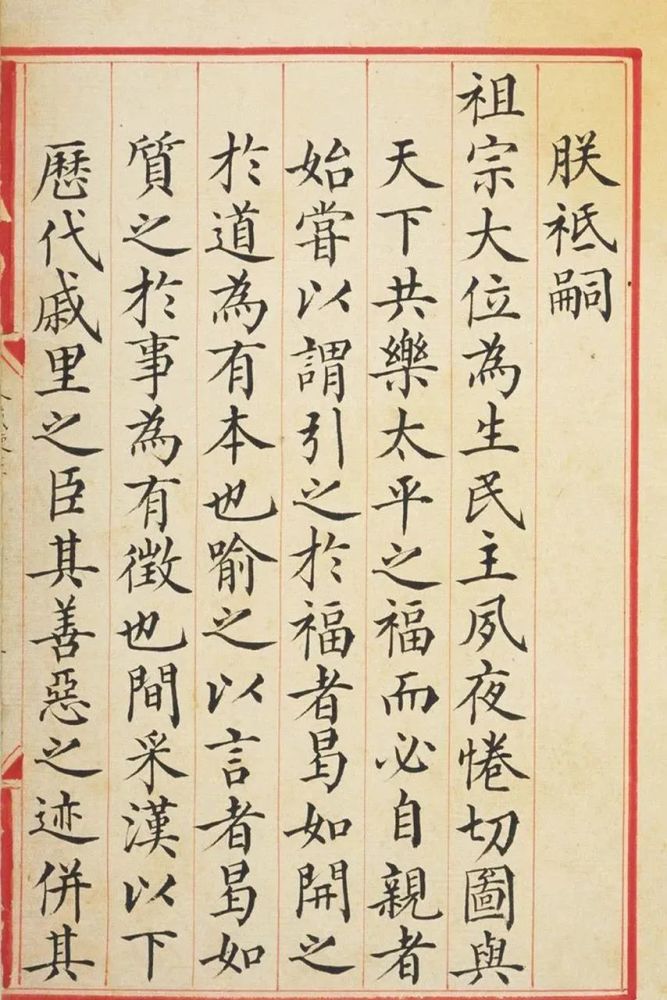 朕祗嗣
祖宗大位為生民主夙夜惓切圖與
天下共樂太平之福而必自親者
始嘗以謂引之於福者曷如開之
於道為有本也喻之以言者曷如
質之於事為有徵也間采漢以下
歷代戚里之臣其善惡之迹併其